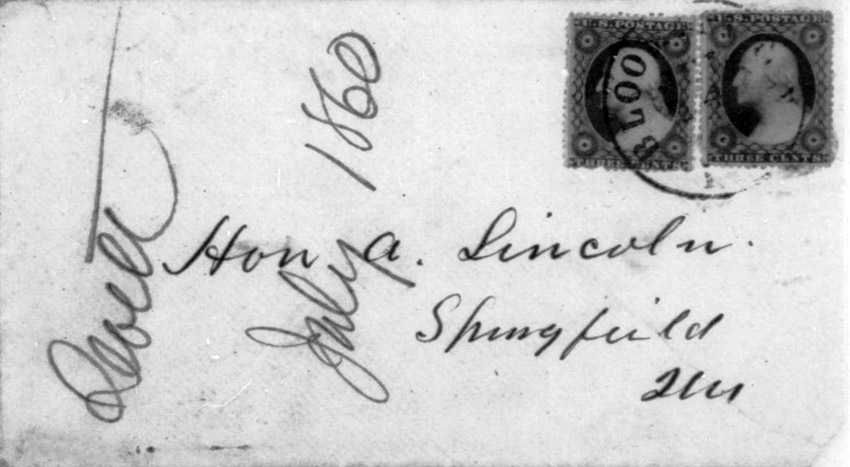 U.S. POSTAGE
THREE CENTS
U.S. POSTAGE
THREE CENTS
BLOO
Hon A. Lincoln.
Springfield
Ills
July 1860